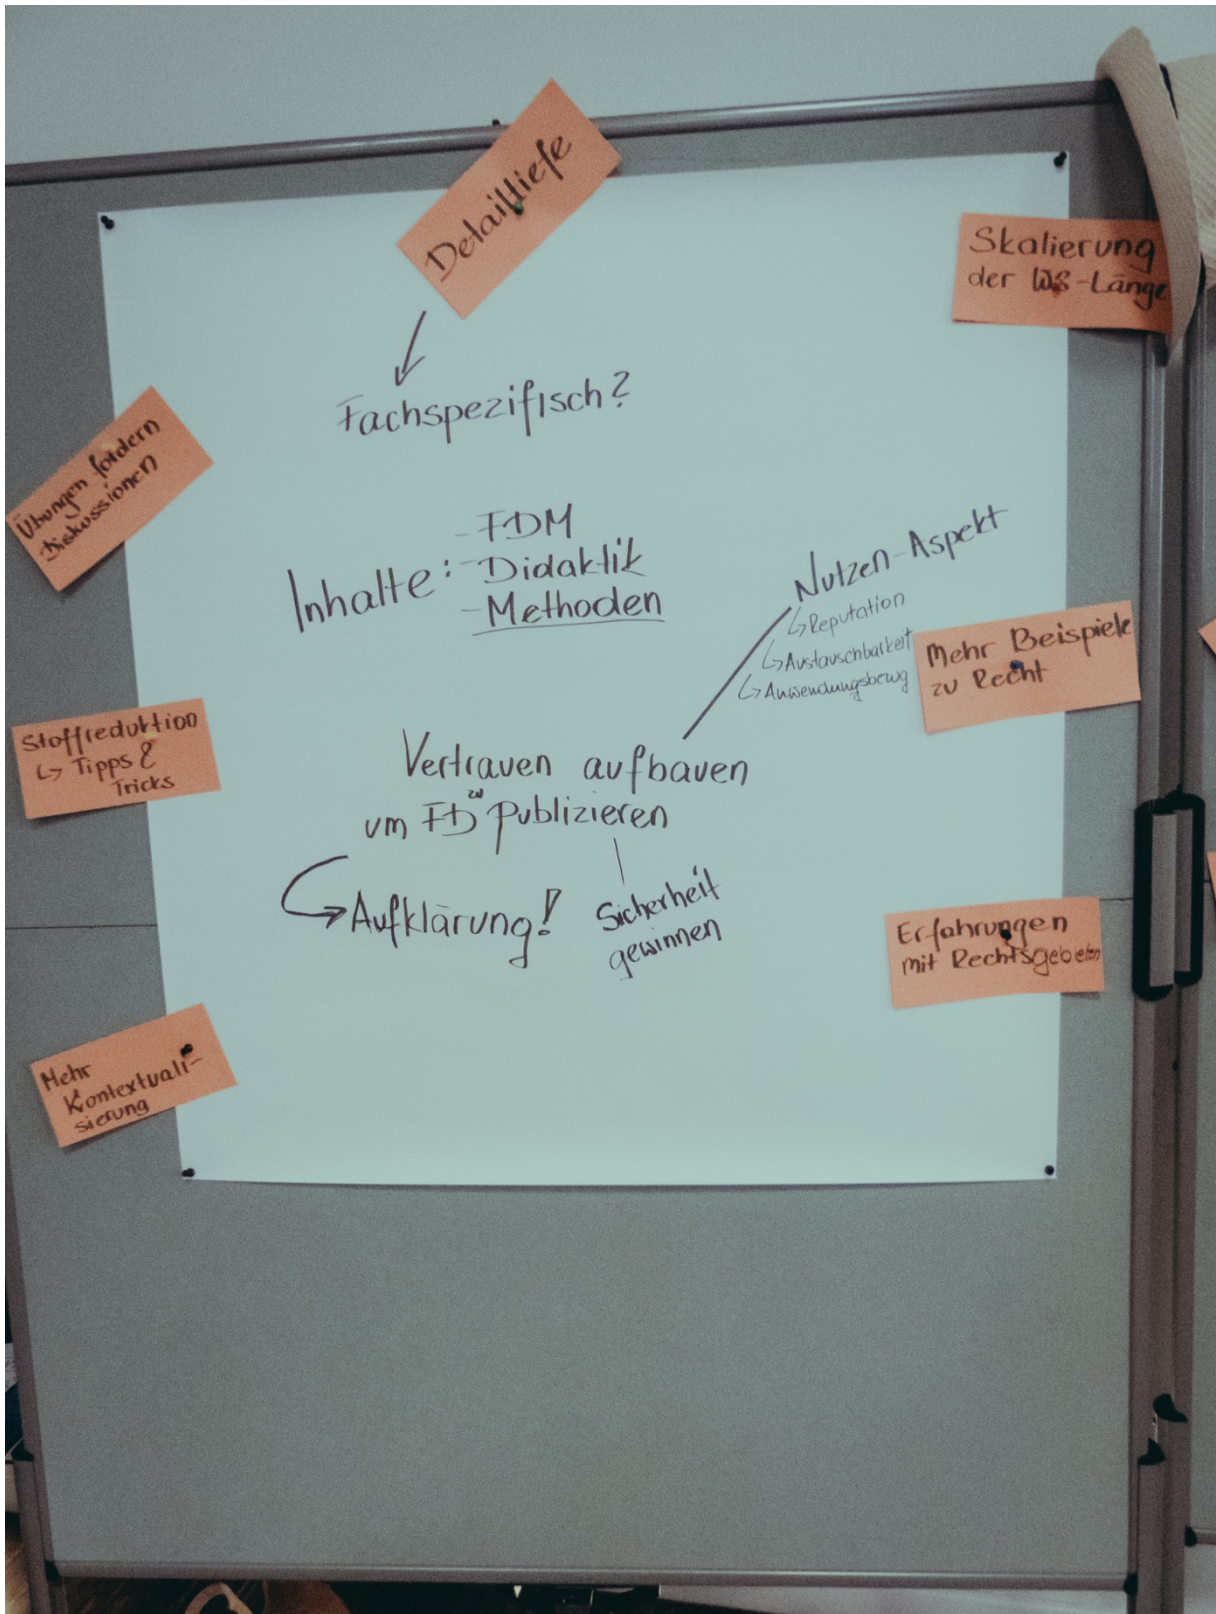 Detailtiefe
Skalierung
der WS-Länge
Fachspezifisch?
Übungen fördern
Diskussionen
Inhalte:
- FDM
- Didaktik
- Methoden
Nutzen-Aspekt
↳ Reputation
↳ Austauschbarkeit
↳ Anwendungsbewg
Mehr Beispiele
zu Recht
Stoffreduktion
↳ Tipps &
Tricks
Vertrauen aufbauen
um FD zu publizieren
Aufklärung!
Sicherheit
gewinnen
Erfahrungen
mit Rechtsgebieten
Mehr
Kontextuali-
sierung